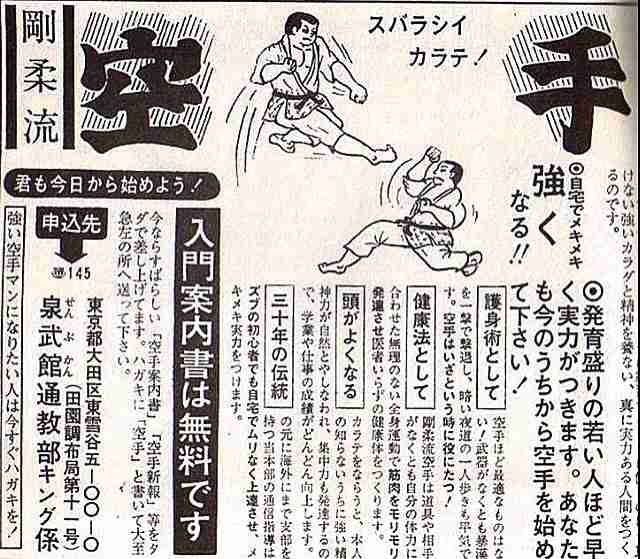 空手
剛柔流
スバラシイ
カラテ!
君も今日から始めよう!
けない強いカラダと精神を養ない、真に実力ある人間をつく
るのです。
◎自宅でメキメキ
強く
なる!!
◎発育盛りの若い人ほど早
く実力がつきます。あなた
も今のうちから空手を始め
て下さい!
護身術として
空手ほど最適なものはな
い!武器がなくとも暴漢
を一撃で撃退し、暗い夜道の一人歩きも平気で
す。空手はいざという時に役にたつ!
健康法として
剛柔流空手は道具や相手
がなくとも自分の体力に
合わせた無理のない全身運動で筋肉をモリモリ
発達させ医者いらずの健康体をつくります。
頭がよくなる
カラテをならうと、本人
の知らないうちに強い精
神力が自然とやしなわれ、集中力も発達するの
で、学業や仕事の成績がどんどん向上します。
三十年の伝統
の元に海外にまで支部を
持つ当本部の通信指導は
ズブの初心者でも自宅でムリなく上達させ、メ
キメキ実力をつけます。
入門案内書は無料です
今ならすばらしい「空手案内書」「空手新報」等をタ
ダで差し上げてます。ハガキに「空手」と書いて大至
急左の所へ送って下さい。
申込先
〒145
東京都大田区東雪谷五ー〇〇ー〇
(田園調布局第十一号)
せんぶかん
泉武館通教部キング係
強い空手マンになりたい人は今すぐハガキを!